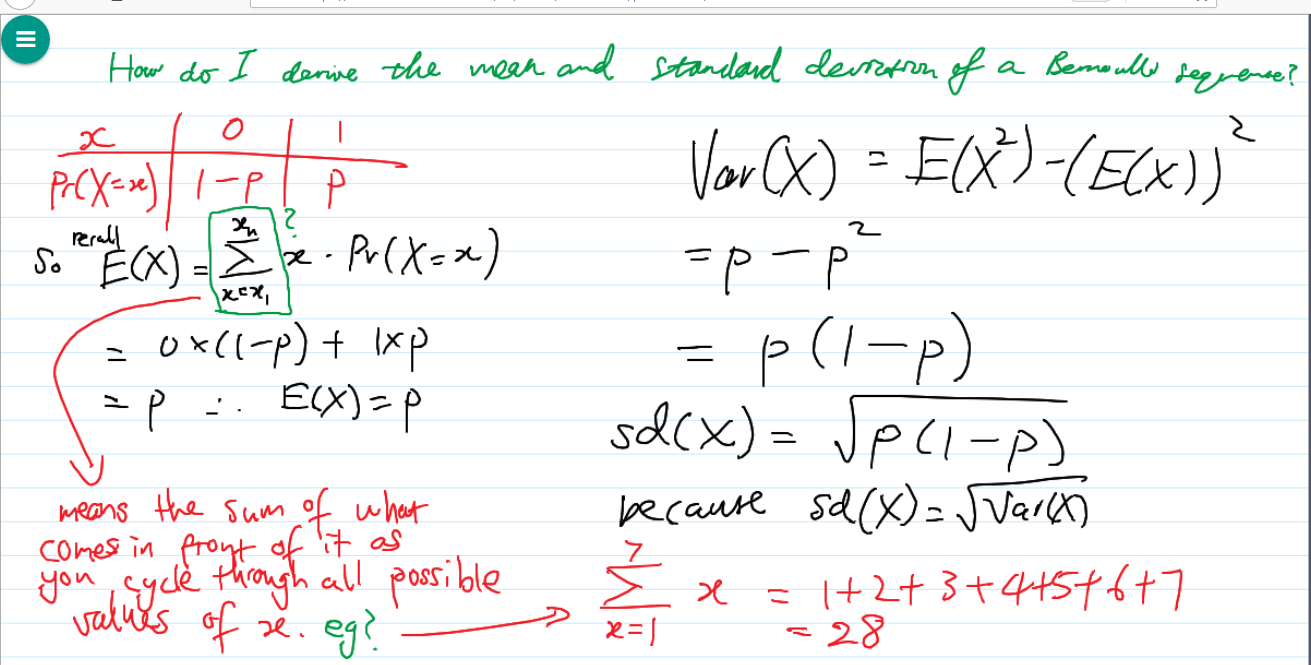 How do I derive the mean and standard deviation of a Bernoulli sequence?
x | 0 | 1
Pr(X=x) | 1-p | p
So recall E(X) = ∑_{x=x₁}^{xₙ} x · Pr(X=x) ?
= 0×(1-p) + 1×p
= p ∴ E(X) = p
means the sum of what
comes in front of it as
you cycle through all possible
values of x. eg?
Var(X) = E(X²) - (E(X))²
= p - p²
= p(1-p)
sd(X) = √p(1-p)
because sd(X) = √Var(X)
∑_{x=1}^{7} x = 1+2+3+4+5+6+7
= 28